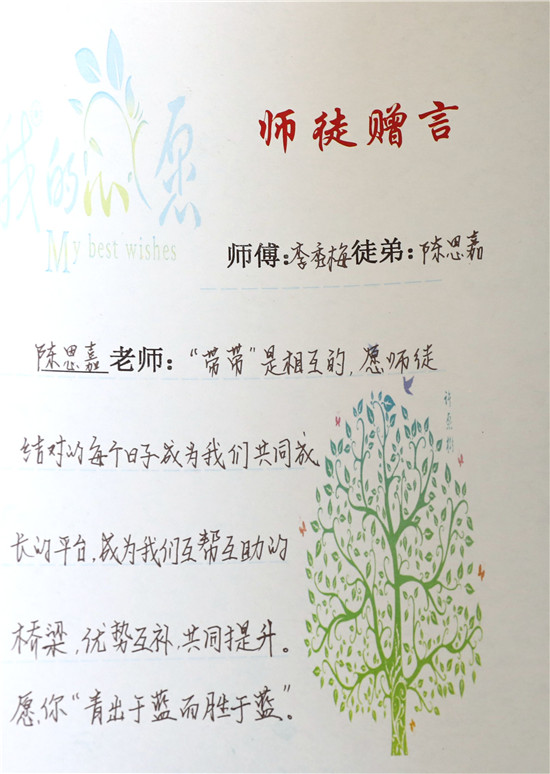 我的心愿
My best wishes
师徒赠言
师傅：李秀梅徒弟：陈思嘉
陈思嘉老师：“带带”是相互的，愿师徒
许愿树
结对的每个日子成为我们共同成
长的平台，成为我们互帮互助的
桥梁，优势互补，共同提升。
愿你“青出于蓝而胜于蓝”。